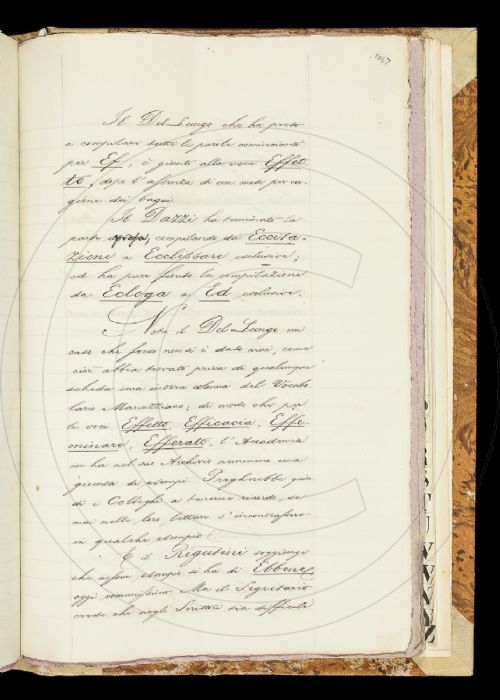 1047
Il Del-Lungo che ha preso
a compilare tutte le parole comincianti
per Ef, è giunto alla voce Effet-
to, dopo l'assenza di un mese per ca-
gione dei bagni.
Il Dazzi ha terminato la
parte presa, compilando da Eccita-
zione a Ecclissare exclusive;
ed ha pure finito la compilazione
da Ecloga a Ed exclusive.
Nota il Del-Lungo un
caso che forse non si è dato mai, come
cioè abbia trovato priva di qualunque
scheda una intera colonna del Vocabo-
lario Manuzziano; di modo che per
le voci Effetto, Efficacia, Effe-
minare, Efferato, l'Accademia
non ha nel suo Archivio nemmeno una
giunta di esempi. Pregherebbe quin-
di i Colleghi a tenerne ricordo, se
mai nelle loro letture s'incontrassero
in qualche esempio.
E il Rigutini soggiunge
che nessun esempio si ha di Ebbene,
oggi comunissimo. Ma il Segretario
crede che negli Scrittori sia difficile